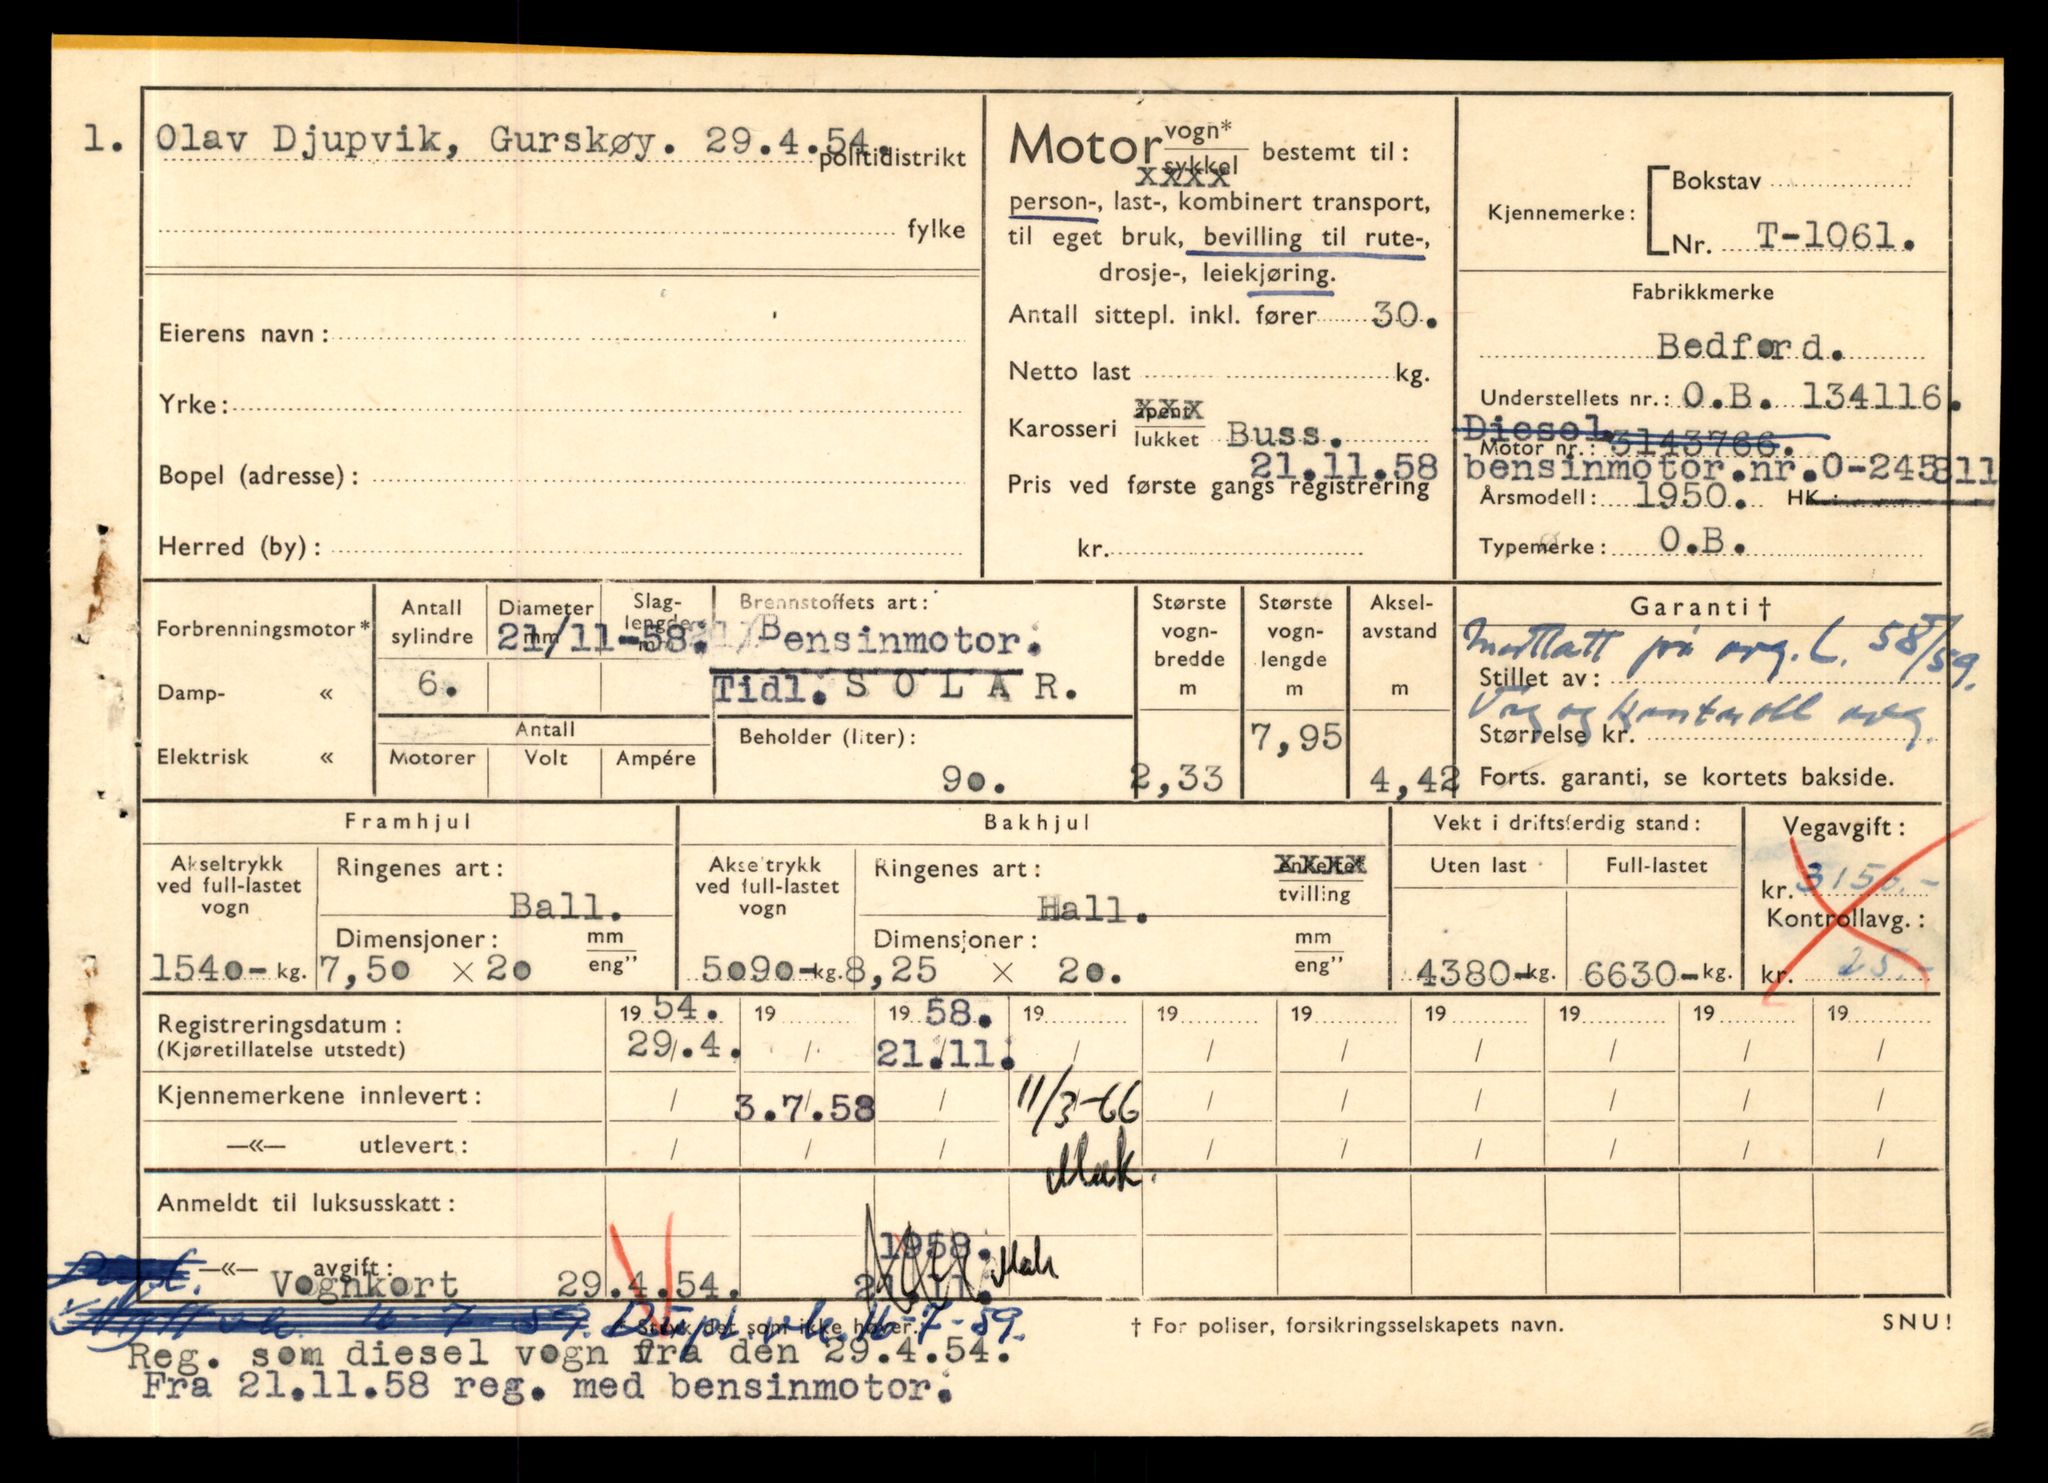 1. Olav Djupvik, Gurskøy. 29.4.54.
politidistrikt
fylke
Eierens navn:
Yrke:
Bopel (adresse):
Herred (by):
Motor vogn* sykkel bestemt til:
xxxx
person-, last-, kombinert transport,
til eget bruk, bevilling til rute-,
drosje-, leiekjøring.
Antall sittepl. inkl. fører 30.
Netto last kg.
xxx
Karosseri åpent lukket Buss.
21.11.58
Pris ved første gangs registrering
kr.
Kjennemerke: Bokstav
Nr. T-1061.
Fabrikkmerke
Bedford.
Understellets nr.: O.B. 134116.
Diesel.
Motor nr.: 3143766.
bensinmotor.nr.0-245811
Årsmodell: 1950. HK.:
Typemerke: O.B.
Forbrenningsmotor*
Damp- «
Elektrisk «
Antall sylindre
6.
Diameter mm
Slag-lengde
21/11-58.
Antall
Motorer Volt Ampére
Brennstoffets art:
Bensinmotor.
Tidl. S O L A R.
Beholder (liter):
90.
Største vogn-bredde m
2,33
Største vogn-lengde m
7,95
Aksel-avstand m
4,42
Garanti †
58/59.
Stillet av:
Størrelse kr.
Forts. garanti, se kortets bakside.
Framhjul
Akseltrykk ved full-lastet vogn
1540- kg.
Ringenes art:
Ball.
Dimensjoner: mm eng"
7,50 × 20
Bakhjul
Akseltrykk ved full-lastet vogn
5090- kg.
Ringenes art: enkeltet tvilling
xxxx
Hall.
Dimensjoner: mm eng"
8,25 × 20.
Vekt i driftsferdig stand:
Uten last Full-lastet
4380- kg. 6630- kg.
Vegavgift:
kr. 3150.-
Kontrollavg.:
kr. 25.-
Registreringsdatum: 19 54. 19 19 58. 19 19 19 19 19 19 19
(Kjøretillatelse utstedt) 29.4. / 21.11. / / / / / / /
Kjennemerkene innlevert: / 3.7.58 / 11/3-66 / / / / / /
—«— utlevert: / / / / / / / / /
Mak.
Anmeldt til luksusskatt:
1958.
—«— avgift:
Vognkort 29.4.54. 21.11. Mak
16-7-59.
* Stryk det som ikke høver.
† For poliser, forsikringsselskapets navn.
SNU!
Reg. som diesel vogn fra den 29.4.54.
Fra 21.11.58 reg. med bensinmotor.